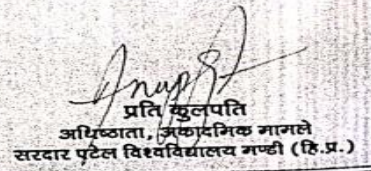 प्रति कुलपति
अधिष्ठाता, अकादमिक मामले
सरदार पटेल विश्वविद्यालय मण्डी (हि.प्र.)